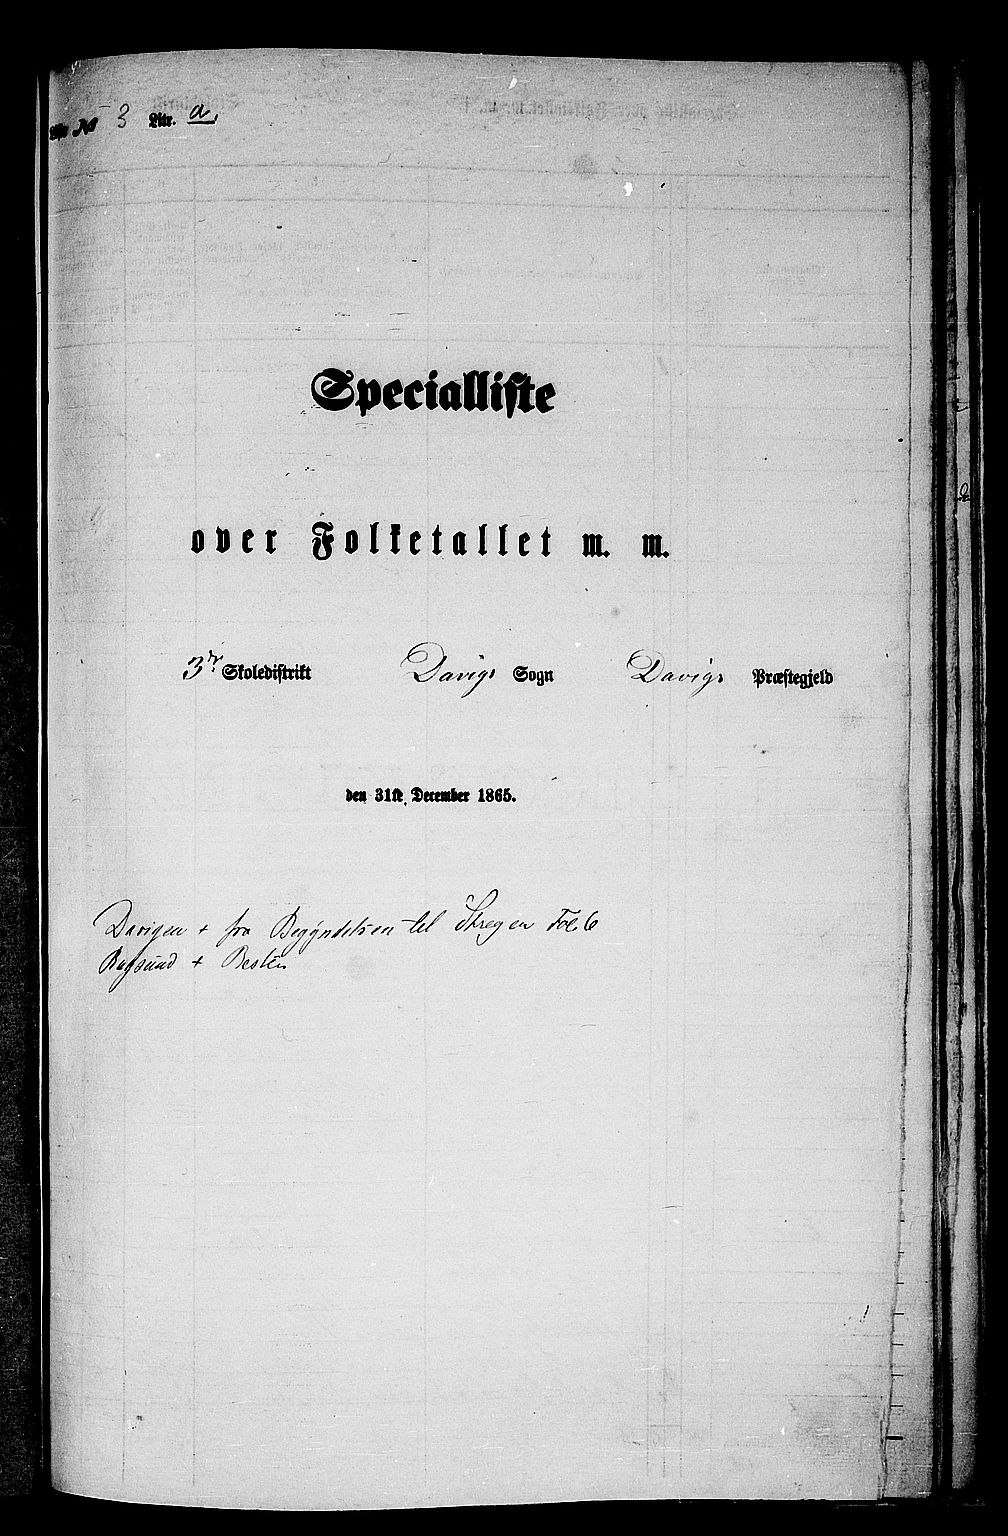 № 3 Litr. a,
Specialliste
over Folketallet m. m.
3die Skoledistrikt Davigs Sogn Davigs Præstegjeld
den 31te December 1865.
Davigen + fra Begyndelsen til Stregen Fol. 6
Rugsund + Resten